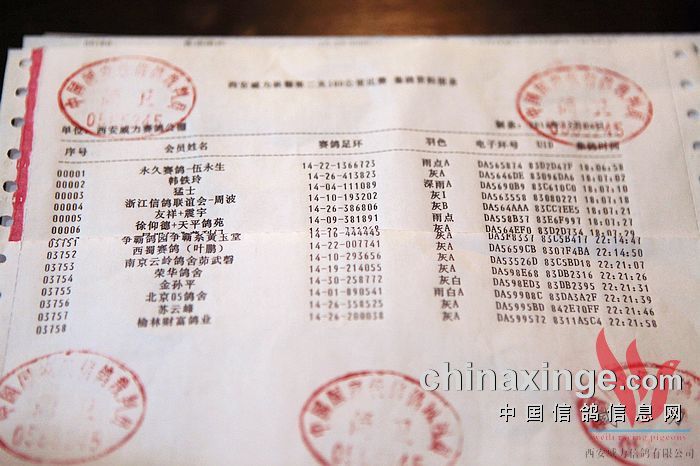 单位：西安威力赛鸽公棚
序号 会员姓名 赛鸽足环 羽色 电子环号 UID 集鸽时间
00001 永久赛鸽-伍永生 14-22-1366723 雨点A DA565874 83D2D47F 18:06:58
00002 韩铁玲 14-26-413823 灰A DA5646DE 8307
00003 猛士 14-04-111089 深雨A DA5690B9 83C610C0 18:07:10
00004 浙江信鸽联谊会-周波 14-10-193202 灰I DA563558 83080221 18:07:18
00005 友祥+震宇 14-26-386806 灰B DA564AAA 83CC7EE5 18:07:21
00006 徐仰德+天平鸽苑 14-09-381891 雨点 DA558B37 83E6F997 18:07:27
03751 争霸鸽园争霸茶黄玉堂 灰A 83C5B417 22:14:47
03752 西蜀赛鸽（叶鹏） 14-22-007741 灰A DA5659CB 8307F4BA 22:14:50
03753 南京云岭鸽舍茆武磐 14-10-293656 灰A DA53526D 83C5BD18 22:21:07
03754 荣华鸽舍 14-19-214055 灰A DA598E68 83DB2316 22:21:26
03755 金孙平 14-30-258772 灰白 DA598ED3 83DB2395 22:21:31
03756 北京05鸽舍 14-01-890541 雨白A DA59908C 83DA3A2F 22:21:39
03757 苏云峰 14-26-358525 灰A DA5995BD 842E70FF 22:21:46
03758 榆林财富鸽业 14-26-200038 灰A DA599572 8311A5C4 22:21:58
chinaxinge.com
中国信鸽信息网
weili racing pigeons
西安威力信鸽有限公司